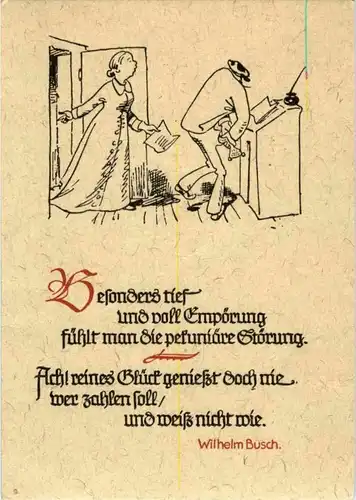 Besonders tief
und voll Empörung
fühlt man die pekuniäre Störung.
Ach! reines Glück genießt doch nie
wer zahlen soll/
und weiß nicht wie.
Wilhelm Busch.